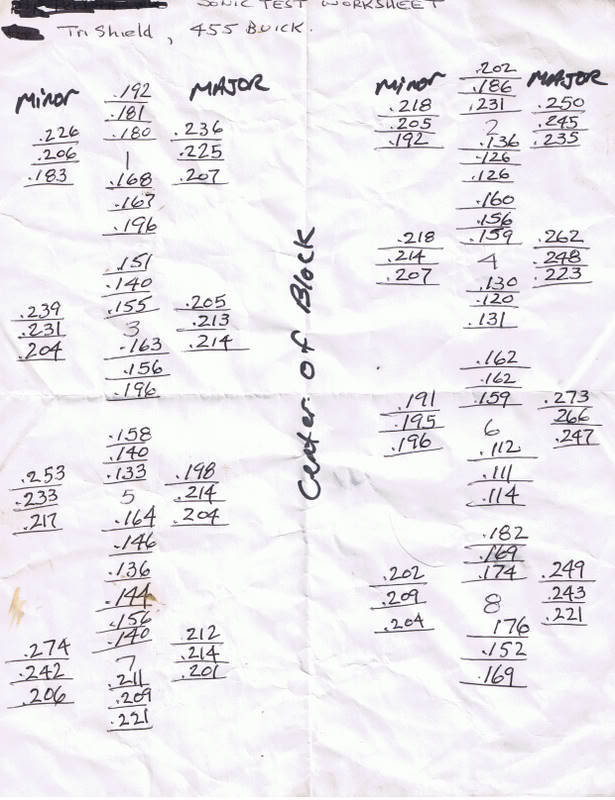 SONIC TEST WORKSHEET
Tri Shield, 455 BUICK.
Minor .192 MAJOR
.181
.226 .180 .236
.206 1 .225
.183 .168 .207
.167
.196
.151
.140
.239 .155 .205
.231 3 .213
.204 .163 .214
.156
.196
.158
.140
.253 .133 .198
.233 5 .214
.217 .164 .204
.146
.136
.144
.156
.274 .140 .212
.242 7 .214
.206 .211 .201
.209
.221
Center of Block
.202
Minor .186 MAJOR
.218 .231 .250
.205 2 .245
.192 .136 .235
.126
.126
.160
.156
.218 .159 .262
.214 4 .248
.207 .130 .223
.120
.131
.162
.162
.191 .159 .273
.195 6 266
.196 .112 .247
.111
.114
.182
.169
.202 .174 .249
.209 8 .243
.204 176 .221
.152
.169